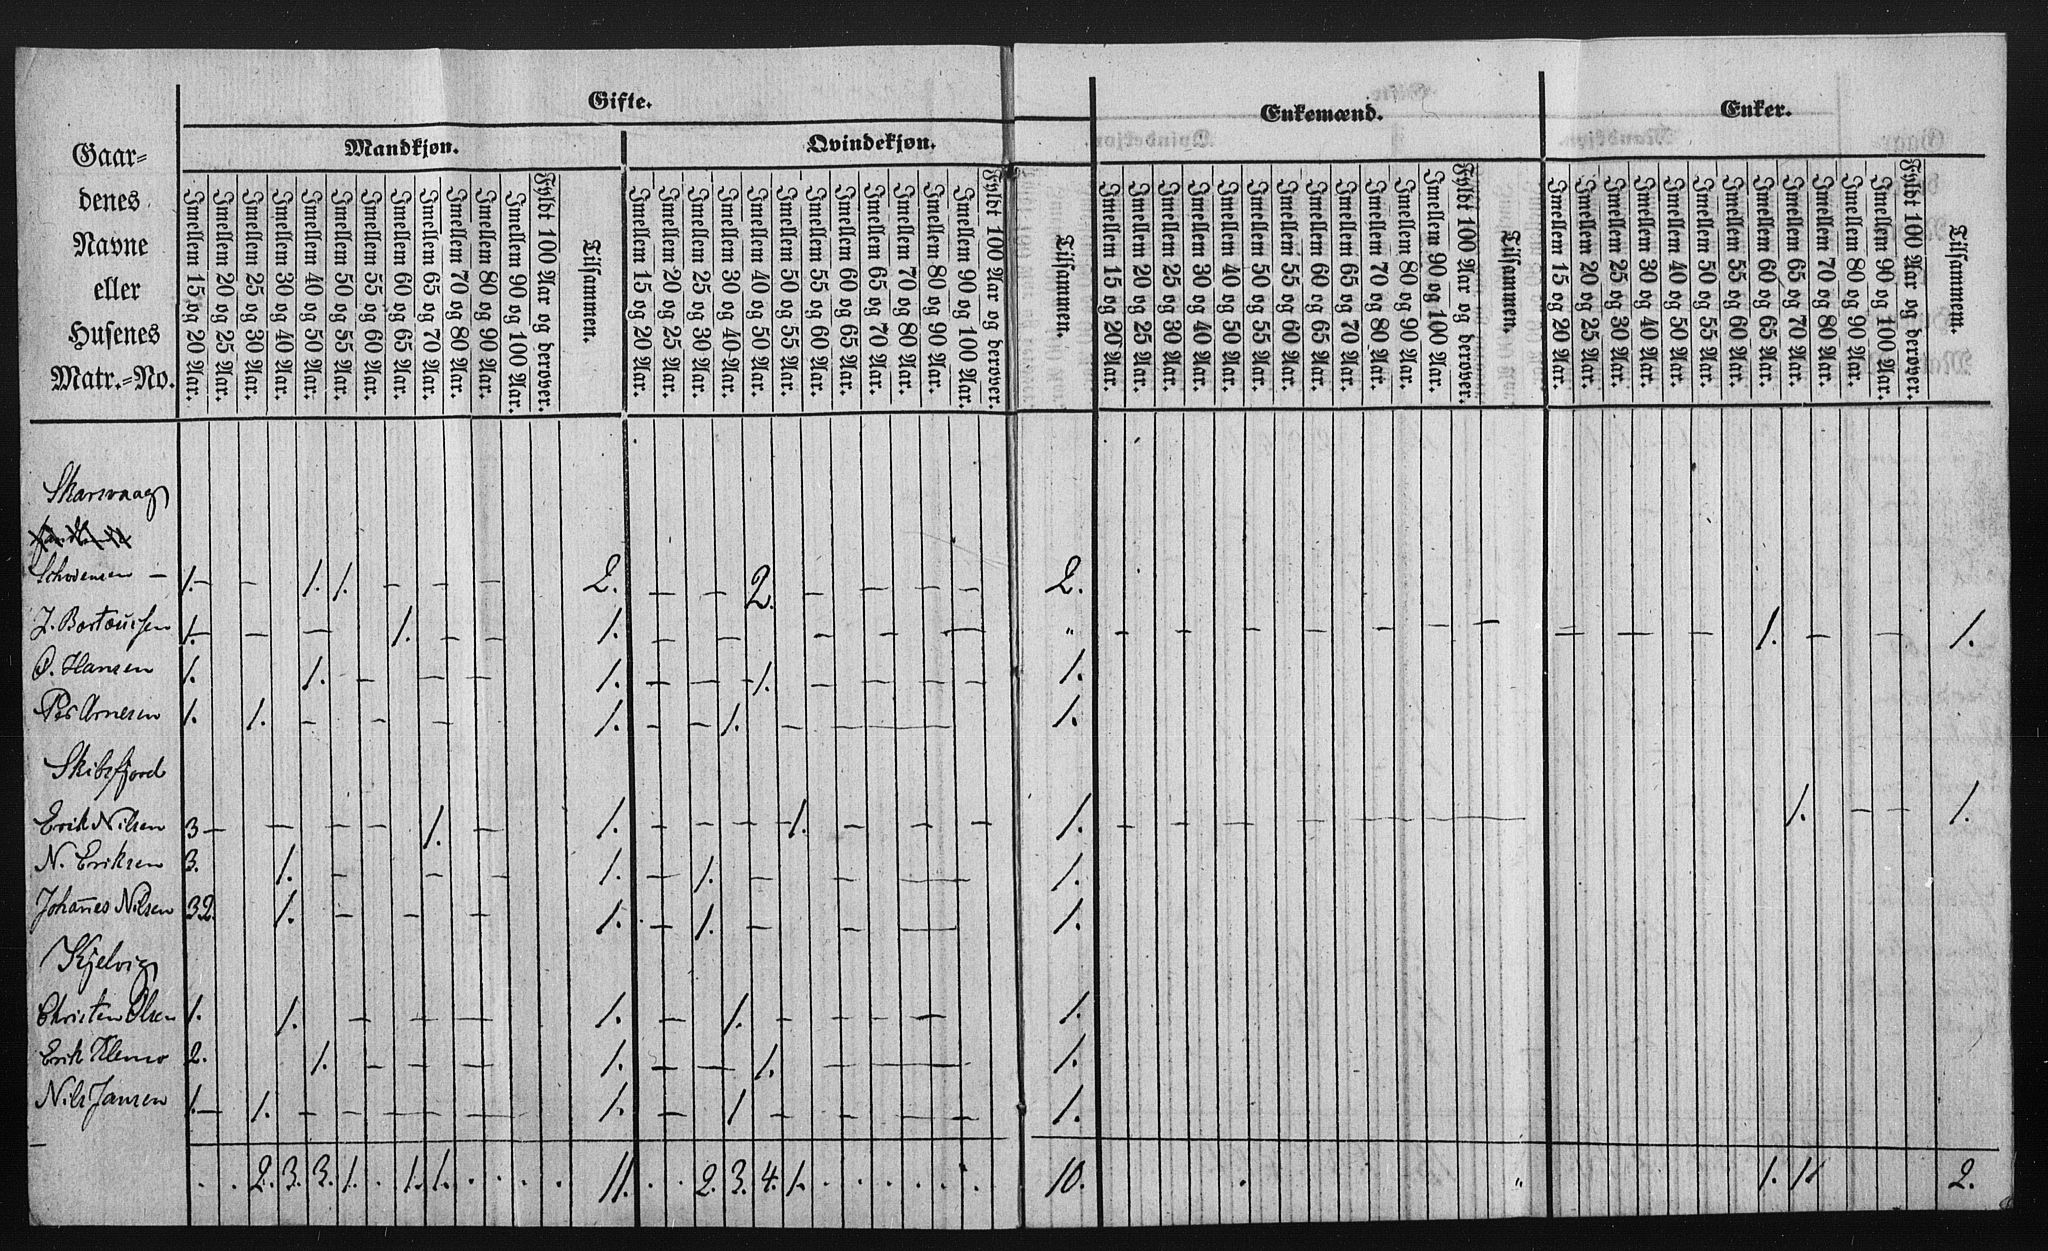 Gifte.
Enkemænd.
Enker.
Mandkjøn.
Qvindekjøn.
Gaar=
denes
Navne
eller
Husenes
Matr.=No.
Imellem 15 og 20 Aar.
Imellem 20 og 25 Aar.
Imellem 25 og 30 Aar.
Imellem 30 og 40 Aar.
Imellem 40 og 50 Aar.
Imellem 50 og 55 Aar.
Imellem 55 og 60 Aar.
Imellem 60 og 65 Aar.
Imellem 65 og 70 Aar.
Imellem 70 og 80 Aar.
Imellem 80 og 90 Aar.
Imellem 90 og 100 Aar.
Fyldt 100 Aar og derover.
Tilsammen.
Imellem 15 og 20 Aar.
Imellem 20 og 25 Aar.
Imellem 25 og 30 Aar.
Imellem 30 og 40 Aar.
Imellem 40 og 50 Aar.
Imellem 50 og 55 Aar.
Imellem 55 og 60 Aar.
Imellem 60 og 65 Aar.
Imellem 65 og 70 Aar.
Imellem 70 og 80 Aar.
Imellem 80 og 90 Aar.
Imellem 90 og 100 Aar.
Fyldt 100 Aar og derover.
Tilsammen.
Imellem 15 og 20 Aar.
Imellem 20 og 25 Aar.
Imellem 25 og 30 Aar.
Imellem 30 og 40 Aar.
Imellem 40 og 50 Aar.
Imellem 50 og 55 Aar.
Imellem 55 og 60 Aar.
Imellem 60 og 65 Aar.
Imellem 65 og 70 Aar.
Imellem 70 og 80 Aar.
Imellem 80 og 90 Aar.
Imellem 90 og 100 Aar.
Fyldt 100 Aar og derover.
Tilsammen.
Imellem 15 og 20 Aar.
Imellem 20 og 25 Aar.
Imellem 25 og 30 Aar.
Imellem 30 og 40 Aar.
Imellem 40 og 50 Aar.
Imellem 50 og 55 Aar.
Imellem 55 og 60 Aar.
Imellem 60 og 65 Aar.
Imellem 65 og 70 Aar.
Imellem 70 og 80 Aar.
Imellem 80 og 90 Aar.
Imellem 90 og 100 Aar.
Fyldt 100 Aar og derover.
Tilsammem.
Skarsvaag
1. — — 1. 1. — — — 2. — — 2. — — — — 2.
1. — — — 1. — — 1. — — — — — — " — — — — — — — — — — 1. — — 1.
O. Hansen 1. 1. — — — 1. — — 1. — — — — — 1.
Per Arnesen 1. 1. — — — 1. — — 1. — — — — 1.
Skibsfjord
Erik Nilsen 3 — — — — 1. — 1. — — — — 1. — — — — 1. — — — — — — — 1. — — 1.
N. Eriksen 3. 1. — — — 1. — 1. — — — 1.
Johañes Nilsen 32. 1. — — — 1. — 1. — — — 1.
Kjelvig
Christen Olsen 1. 1. — — — 1. — 1. — — — — 1.
Erik 2. 1. — — — 1. — — 1. — — 1.
Nils Jansen 1. — 1. — — — — 1. — 1 — — — — 1.
. . 2. 3. 3. 1. . 1. 1. . . . . 11. . . 2. 3. 4. 1. . . . . . . 10. . " 1. 1. 2.